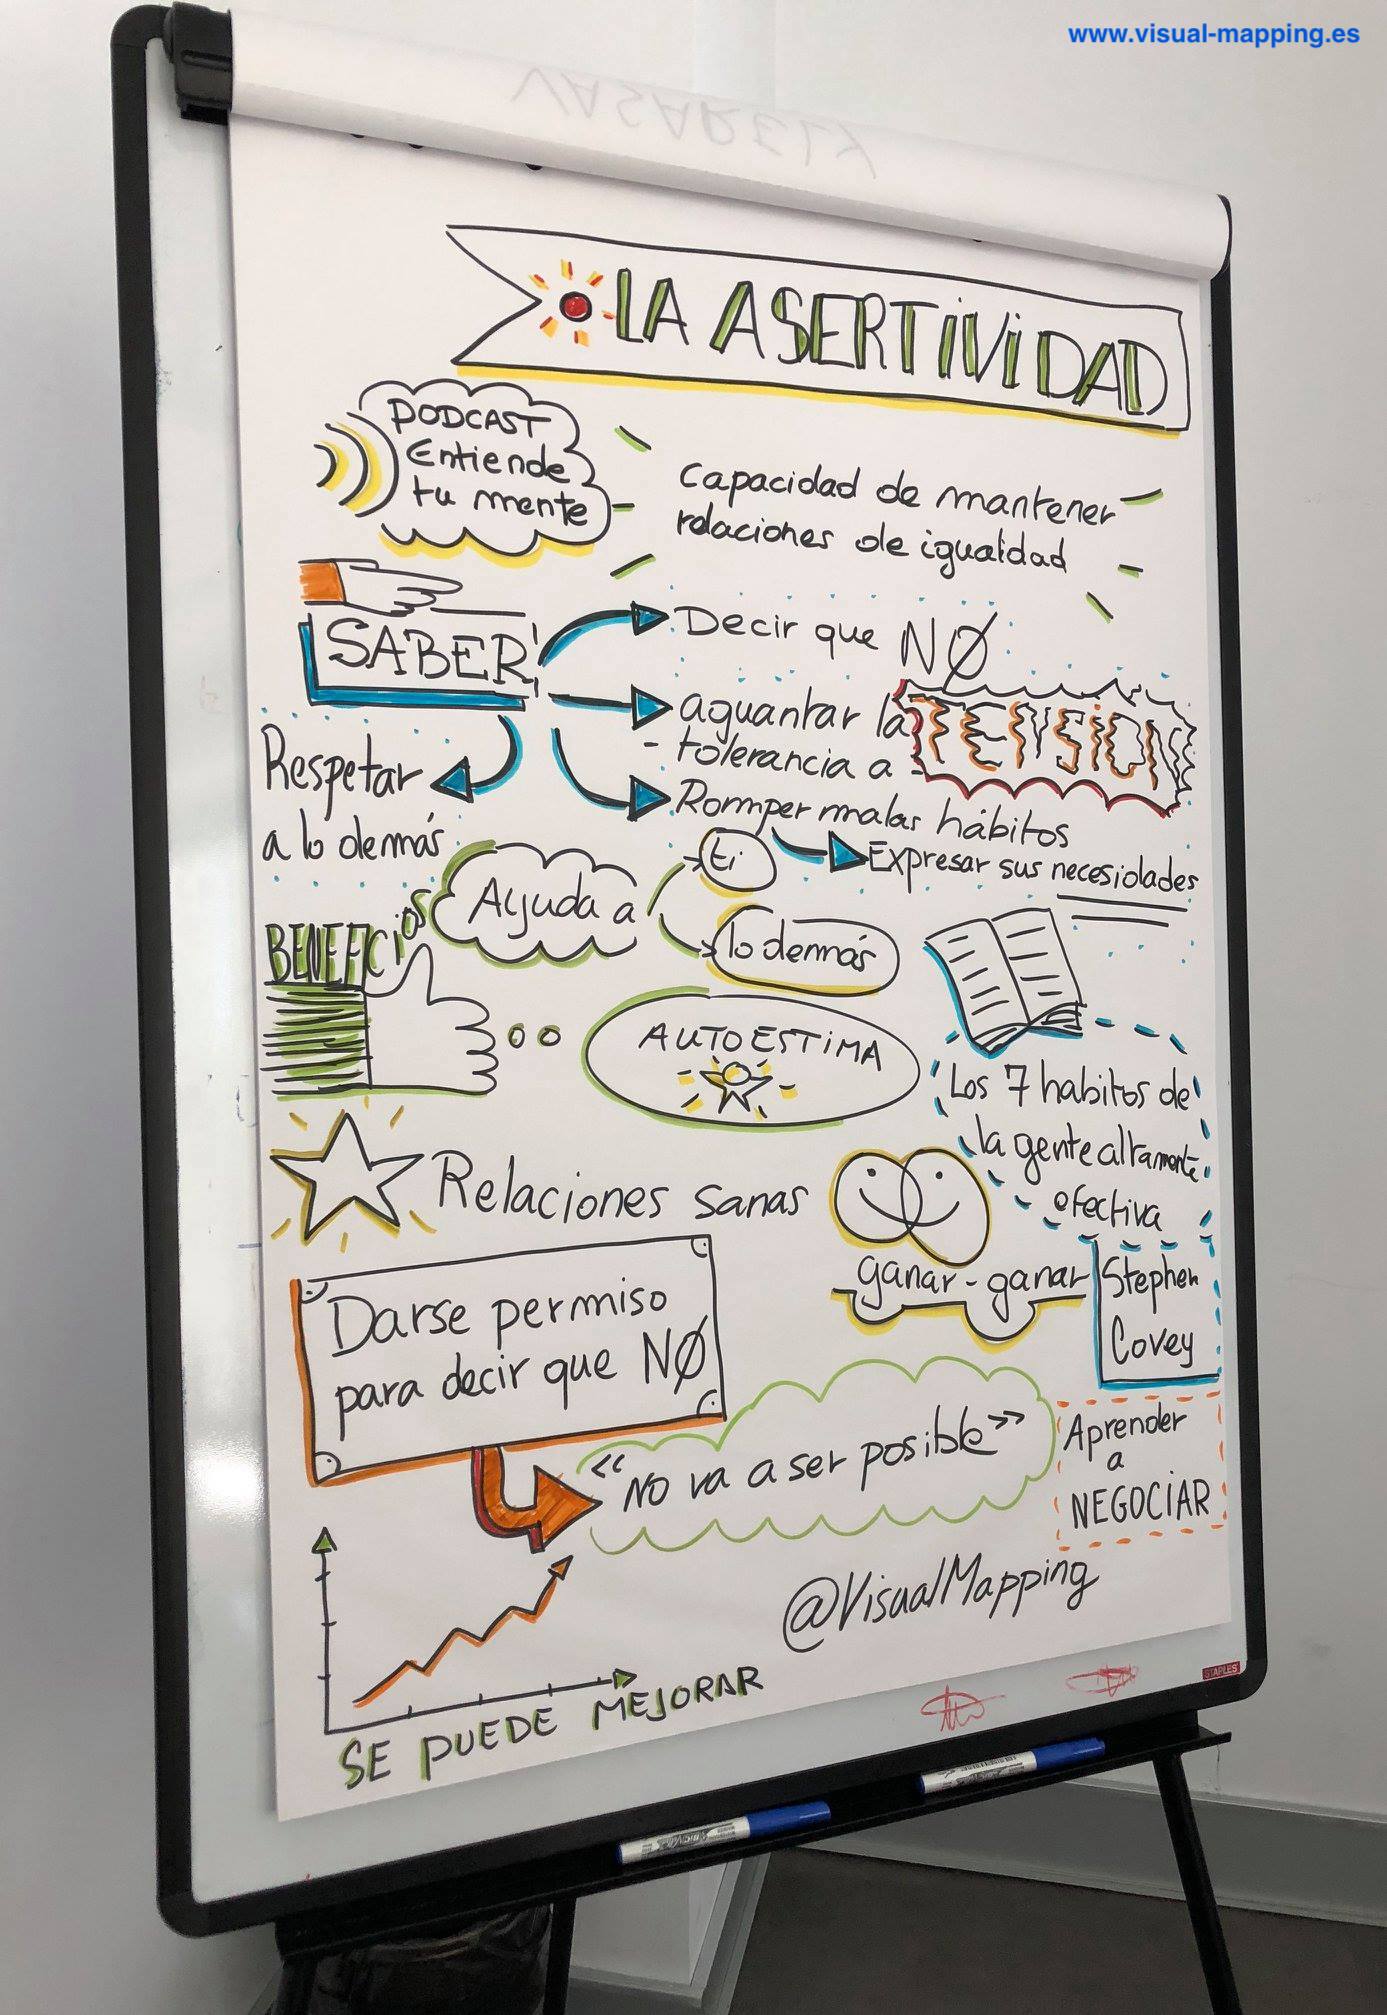 www.visual-mapping.es
VASARELY
LA ASERTIVIDAD
PODCAST
Entiende
tu mente
Capacidad de mantener
relaciones de igualdad
SABER
Decir que NO
aguantar la TENSION
- tolerancia a -
Romper malas hábitos
Expresar sus necesidades
Respetar
a lo demás
BENEFICIOS
Ayuda a
ti
lo demás
AUTOESTIMA
Los 7 habitos de
la gente altamente
efectiva
Stephen
Covey
Relaciones sanas
ganar - ganar
Darse permiso
para decir que NO
"No va a ser posible"
Aprender
a
NEGOCIAR
@VisualMapping
SE PUEDE MEJORAR
STAPLES